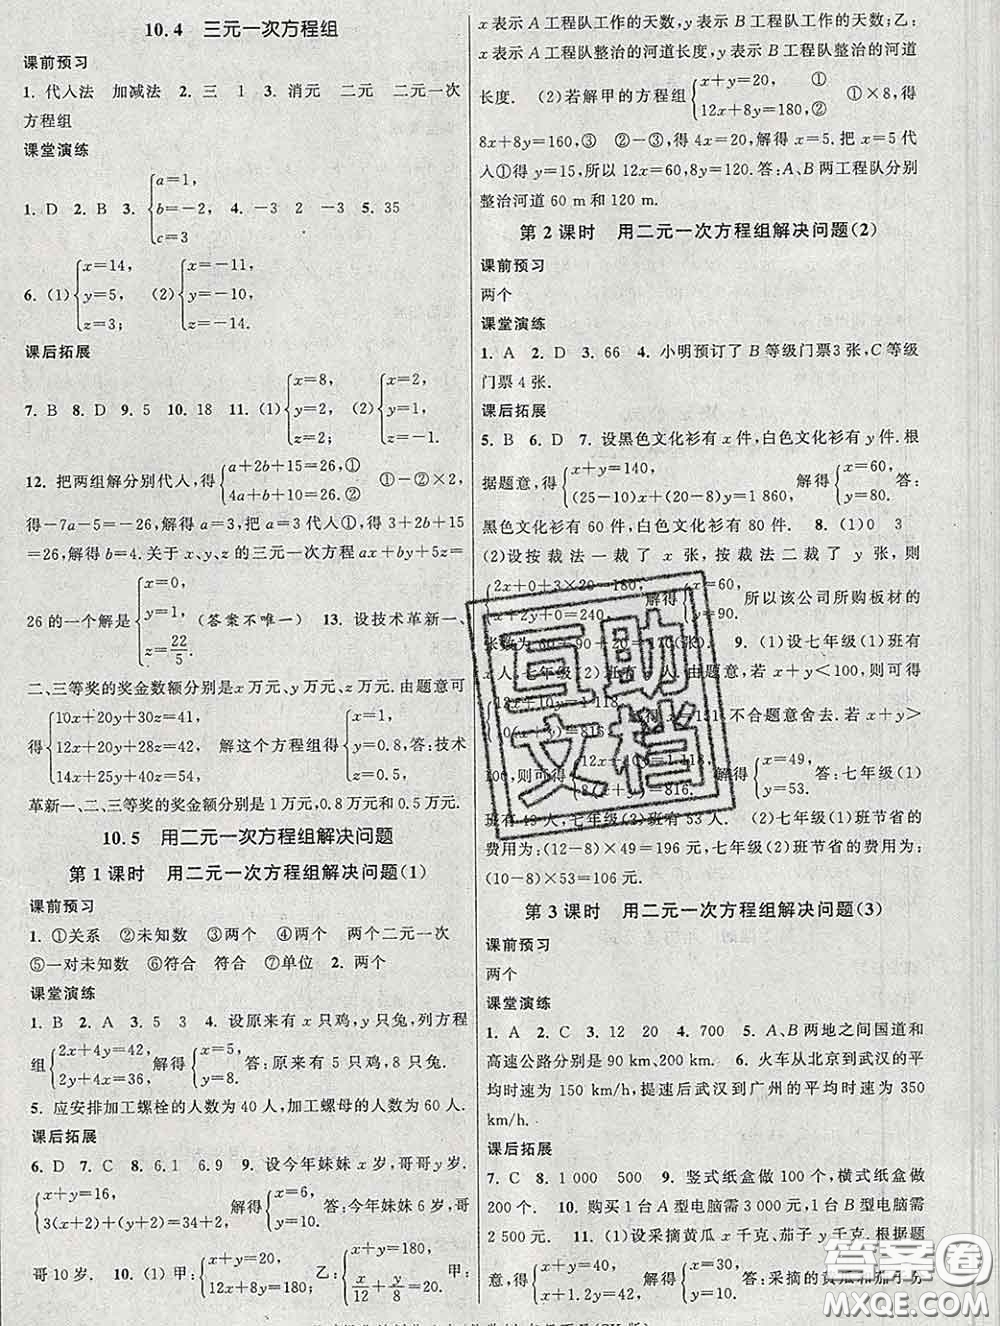 10.4 三元一次方程组
课前预习
1. 代入法 加减法 2. 三 1 3. 消元 二元 二元一次
方程组
课堂演练
1. D 2. B 3. {a=1, b=-2, c=3 4. -3 2 -3 5. 35
6. (1) {x=14, y=5, z=3; (2) {x=-11, y=-10, z=-14.
课后拓展
7. B 8. D 9. 5 10. 18 11. (1) {x=8, y=2, z=2; (2) {x=2, y=1, z=-1.
12. 把两组解分别代人,得 {a+2b+15=26,① 4a+10+b=26.② ①-②×2,
得-7a-5=-26,解得 a=3,把 a=3 代人①,得 3+2b+15
=26,解得 b=4. 关于 x、y、z 的三元一次方程 ax+by+5z=
26 的一个解是 {x=0, y=1, z=22/5. (答案不唯一) 13. 设技术革新一、
二、三等奖的奖金数额分别是 x 万元、y 万元、z 万元. 由题意可
得 {10x+20y+30z=41, 12x+20y+28z=42, 14x+25y+40z=54, 解这个方程组得 {x=1, y=0.8, z=0.5. 答:技术
革新一、二、三等奖的奖金额分别是 1 万元、0.8 万元和 0.5 万元.
10.5 用二元一次方程组解决问题
第 1 课时 用二元一次方程组解决问题(1)
课前预习
1. ①关系 ②未知数 ③两个 ④两个二元一次
⑤一对未知数 ⑥符合 符合 ⑦单位 2. 两个
课堂演练
1. B 2. A 3. 5 3 4. 设原来有 x 只鸡,y 只兔,列方程
组 {2x+4y=42, 2y+4x=36, 解得 {x=5, y=8. 答:原来有 5 只鸡,8 只兔.
5. 应安排加工螺栓的人数为 40 人,加工螺母的人数为 60 人.
课后拓展
6. D 7. C 8. 6.1 6.9 9. 设今年妹妹 x 岁,哥哥 y 岁.
{x+y=16, 3(x+2)+(y+2)=34+2, 解得 {x=6, y=10. 答:今年妹妹 6 岁,哥
哥 10 岁. 10. (1) 甲: {x+y=20, 12x+8y=180, 乙: {x+y=180, x/12+y/8=20. 甲:
x 表示 A 工程队工作的天数,y 表示 B 工程队工作的天数;乙:
x 表示 A 工程队整治的河道长度,y 表示 B 工程队整治的河道
长度. (2)若解甲的方程组 {x+y=20, ① 12x+8y=180,② ①×8,得
8x+8y=160,③ ②-③,得 4x=20,解得 x=5. 把 x=5 代
人①得 y=15,所以 12x=60,8y=120. 答:A、B 两工程队分别
整治河道 60 m 和 120 m.
第 2 课时 用二元一次方程组解决问题(2)
课前预习
两个
课堂演练
1. A 2. D 3. 66 4. 小明预订了 B 等级门票3 张,C 等级
门票 4 张.
课后拓展
5. B 6. D 7. 设黑色文化衫有 x 件,白色文化衫有 y 件. 根
据题意,得 {x+y=140, (25-10)x+(20-8)y=1 860, 解得 {x=60, y=80. 答:
黑色文化衫有 60 件,白色文化衫有 80 件. 8. (1)0 3
(2)设按裁法一裁了 x 张,按裁法二裁了 y 张,则
{2x+0+3×20=180, x+2y+0=240. 解得 {x=60, y=90. 所以该公司所购板材的
张数为 60+90+20=170(张). 9. (1)设七年级(1)班有
x 人,七年级(2)班有 人. 由题意,若 x+y<100,则可得
{12x+10y=1 118, 10(x+y)=816 不合题意舍去. 若 x+y>
则可得 {12x+10y=1 118, 8(x+y)=816. 解得 {x=49, y=53. 答:七年级(1)
班有 49 人,七年级(2)班有 53 人. (2)七年级(1)班节省的
费用为:(12-8)×49=196 元,七年级(2)班节省的费用为:
(10-8)×53=106 元.
第 3 课时 用二元一次方程组解决问题(3)
课前预习
两个
课堂演练
1. A 2. C 3. 12 20 4. 700 5. A、B 两地之间国道和
高速公路分别是 90 km、200 km. 6. 火车从北京到武汉的平
均时速为 150 km/h,提速后武汉到广州的平均时速为 350
km/h.
课后拓展
7. C 8. 1 000 500 9. 竖式纸盒做 100 个,横式纸盒做
200 个. 10. 购买 1 台 A 型电脑需 3 000 元,1 台 B 型电脑需
2 500 元. 11. (1)设采摘黄瓜 x 千克、茄子 y 千克. 根据题
意,得 {x+y=40, x+1.2y=42, 解得 {x=30, y=10. 答:采摘的黄瓜和茄子分
互助
文档
答案圈
MXQE.COM